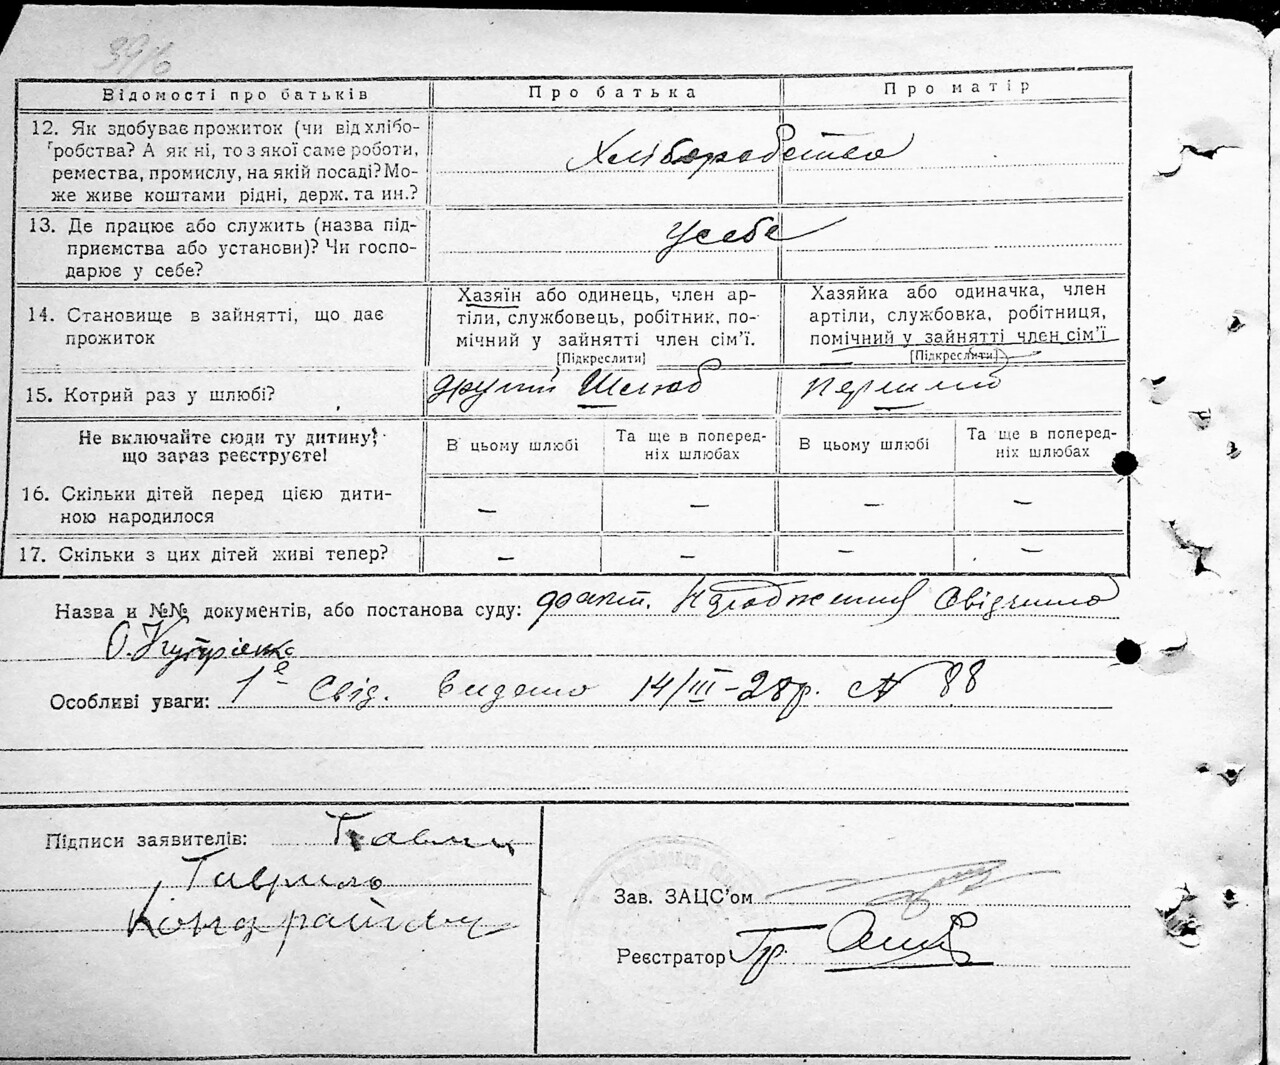 39/6
Відомості про батьків
Про батька
Про матір
12. Як здобуває прожиток (чи від хлібо-
робства? А як ні, то з якої саме роботи,
ремества, промислу, на якій посаді? Мо-
же живе коштами рідні, держ. та ин.?
Хліборобство
13. Де працює або служить (назва під-
приємства або установи)? Чи госпо-
дарює у себе?
У себе
14. Становище в зайнятті, що дає
прожиток
Хазяїн або одинець, член ар-
тілі, службовець, робітник, по-
мічний у зайнятті член сім'ї.
[Підкреслити]
Хазяйка або одиначка, член
артілі, службовка, робітниця,
помічний у зайнятті член сім'ї
[Підкреслити]
15. Котрий раз у шлюбі?
другий Шлюб
первий
Не включайте сюди ту дитину,
що зараз реєструєте!
В цьому шлюбі
Та ще в поперед-
ніх шлюбах
В цьому шлюбі
Та ще в поперед-
ніх шлюбах
16. Скільки дітей перед цією дити-
ною народилося
– – – –
17. Скільки з цих дітей живі тепер?
– – – –
Назва и №№ документів, або постанова суду: факт. Народження Свідчило
О.
Особливі уваги: 1е Свід. видано 14/III–28р. № 88
Підписи заявителів:
Гаврило
Зав. ЗАЦС'ом
Реєстратор Гр.